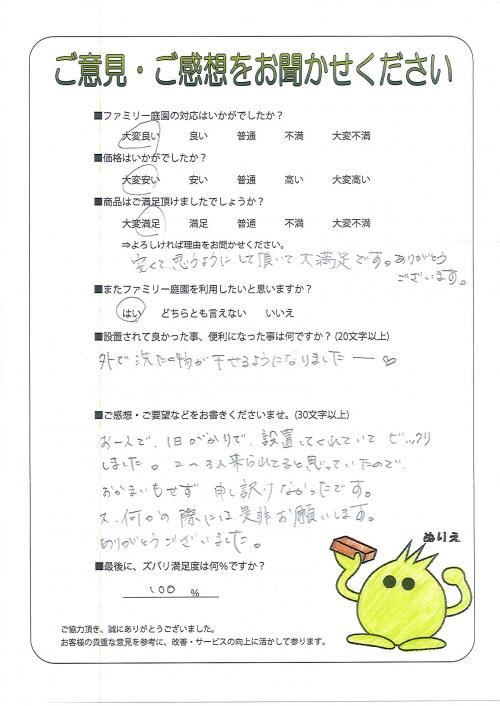 ご意見・ご感想をお聞かせください
■ファミリー庭園の対応はいかがでしたか？
大変良い 良い 普通 不満 大変不満
■価格はいかがでしたか？
大変安い 安い 普通 高い 大変高い
■商品はご満足頂けましたでしょうか？
大変満足 満足 普通 不満 大変不満
⇒よろしければ理由をお聞かせください。
安くて思うようにして頂いて大満足です。ありがとう
ございます。
■またファミリー庭園を利用したいと思いますか？
はい どちらとも言えない いいえ
■設置されて良かった事、便利になった事は何ですか？(20文字以上)
外で洗たく物が干せるようになりました一♡
■ご感想・ご要望などをお書きくださいませ。(30文字以上)
お一人で、1日がかりで、設置してくれていてビックリ
しました。2～3人来られてると思っていたので、
おかまいもせず、申し訳けなかったです。
又、何かの際には是非お願いします。
ありがとうございました。
ぬりえ
■最後に、ズバリ満足度は何％ですか？
100 %
ご協力頂き、誠にありがとうございました。
お客様の貴重な意見を参考に、改善・サービスの向上に活かして参ります。